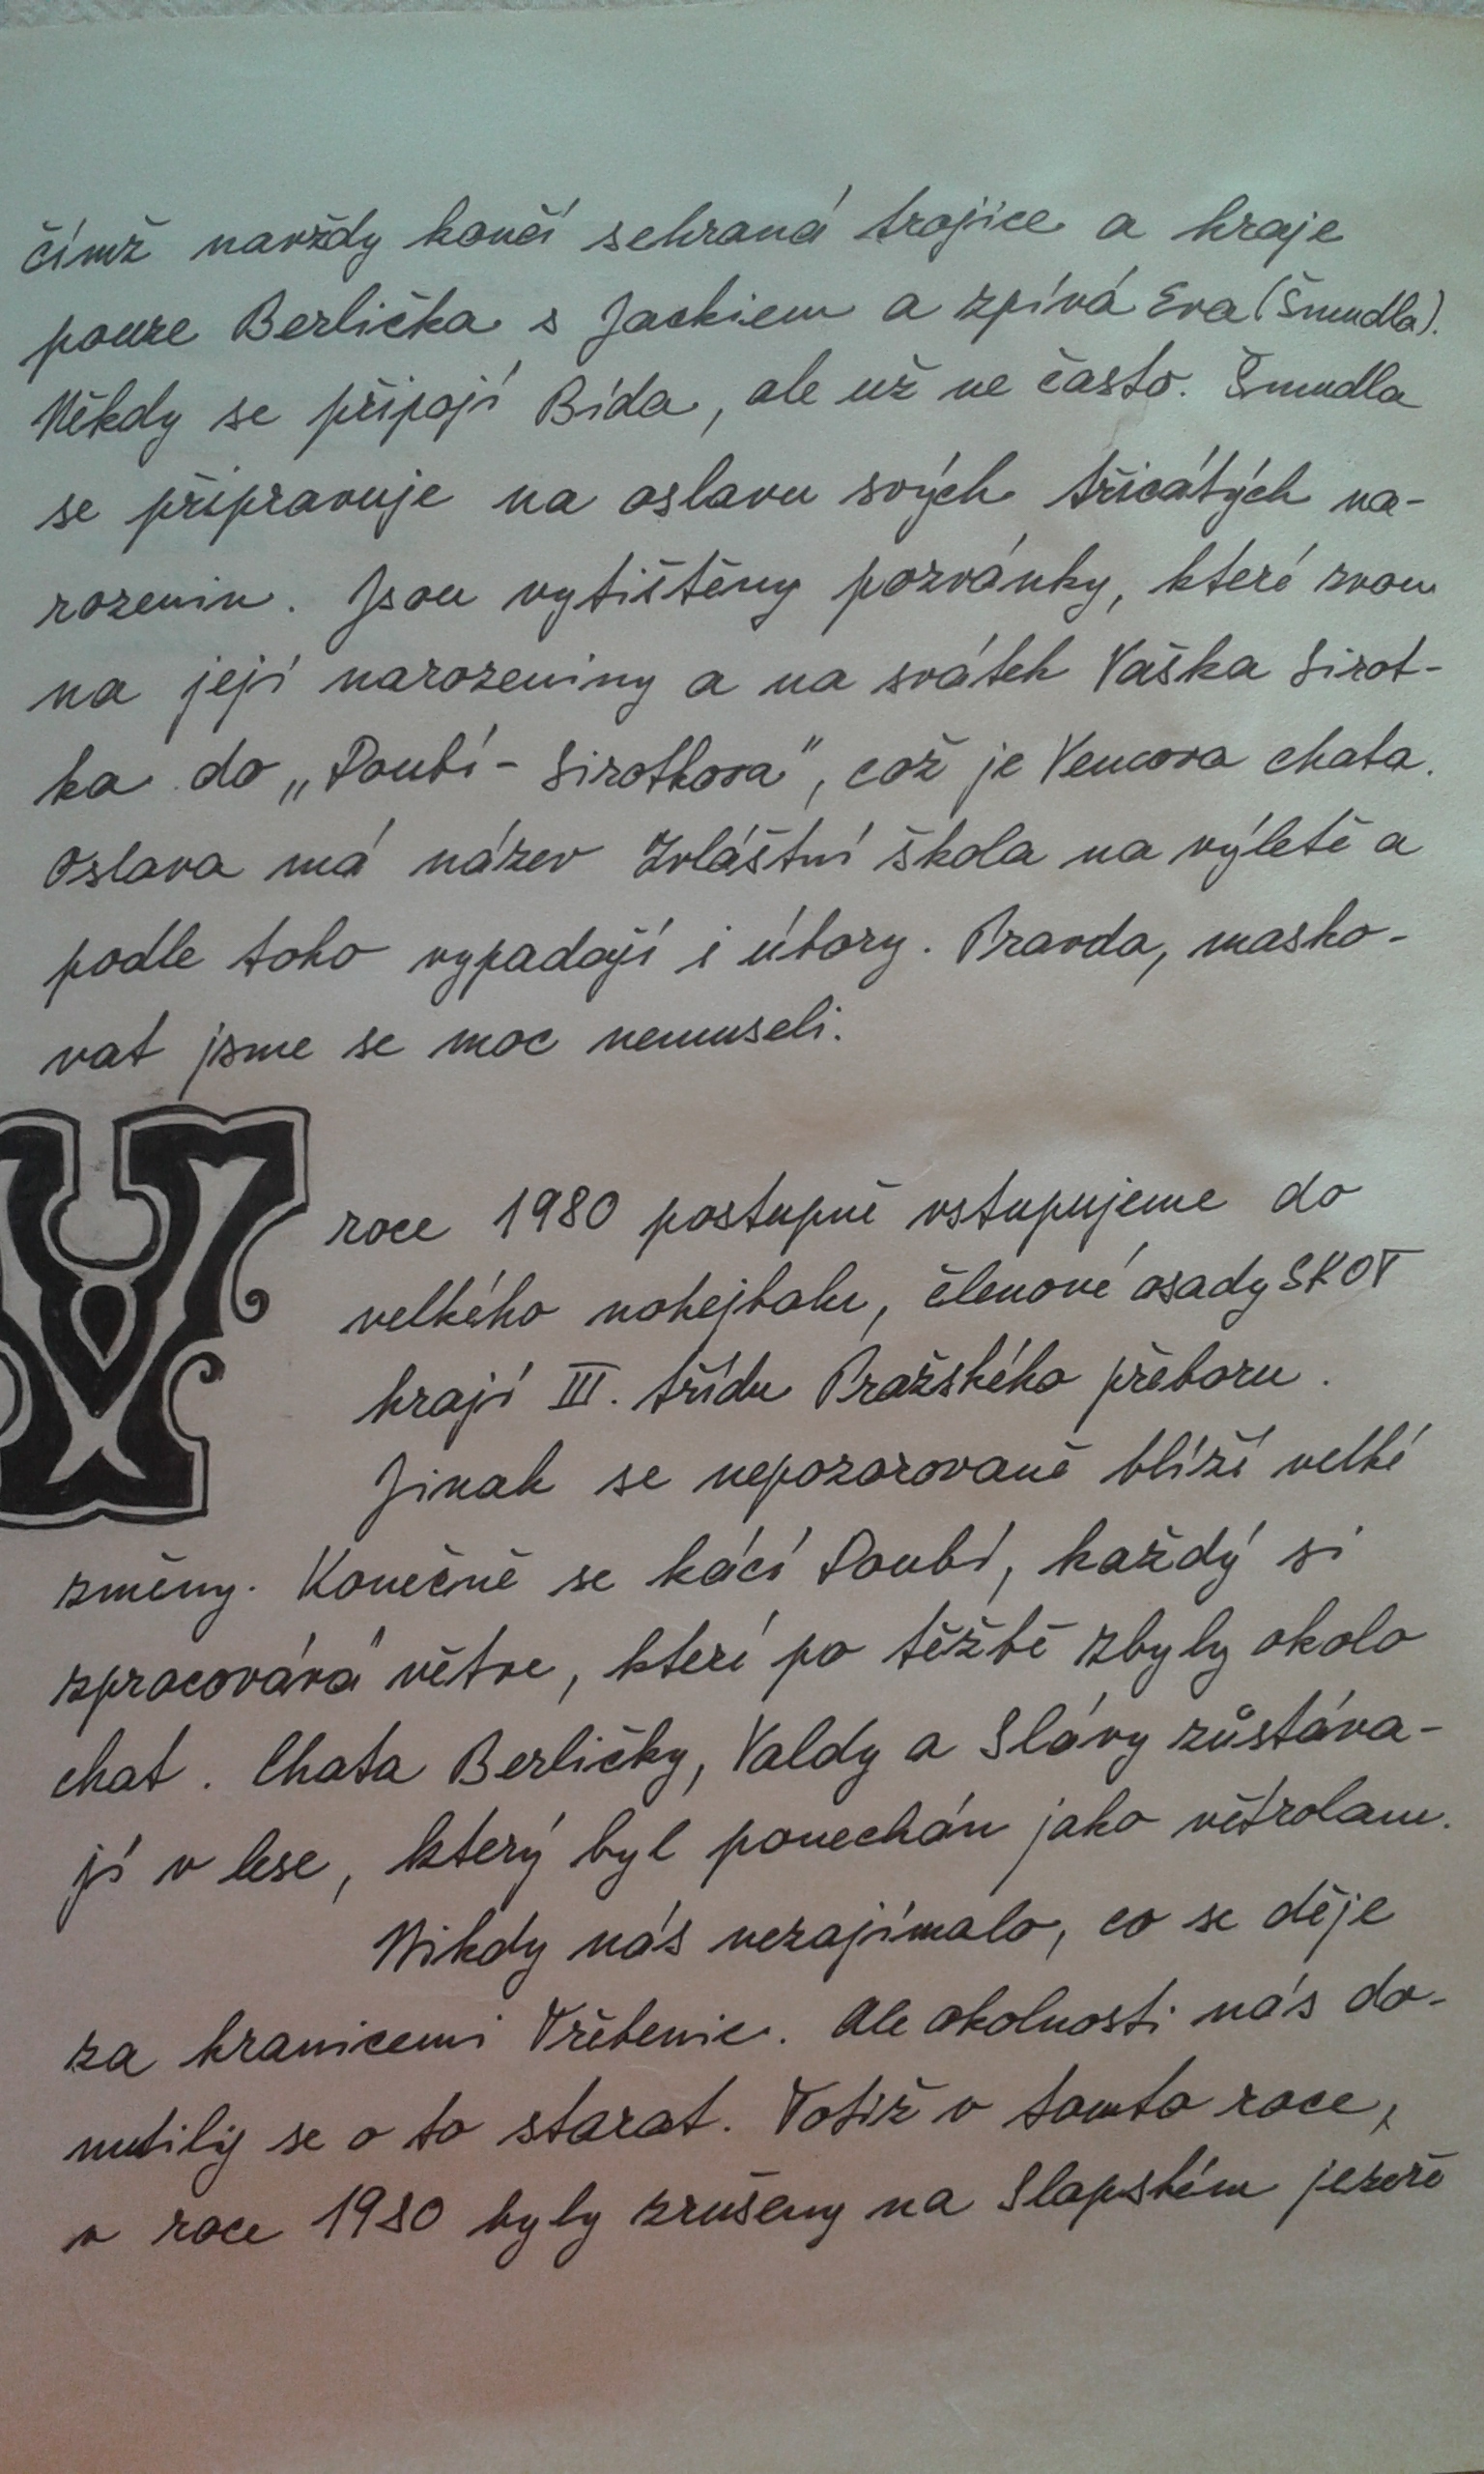 čímž navždy končí sehraná trojice a hraje
pouze Berlička s Jackiem a zpívá Eva (Šmudla).
Někdy se připojí Bída, ale už ne často. Šmudla
se připravuje na oslavu svých třicátých na-
rozenin. Jsou vytištěny pozvánky, které zvou
na její narozeniny a na svátek Vaška Sirot-
ka do „Doubí - Sirotkova", což je Vencova chata.
Oslava má název Zvláštní škola na výletě a
podle toho vypadají i úbory. Pravda, masko-
vat jsme se moc nemuseli.
V roce 1980 postupně vstupujeme do
velkého nohejbalu, členové osady SKOT
hrají III. třídu Pražského přeboru.
Jinak se nepozorovaně blíží velké
změny. Konečně se kácí Doubí, každý si
zpracovává větve, které po těžbě zbyly okolo
chat. Chata Berličky, Valdy a Slávy zůstáva-
jí v lese, který byl ponechán jako větrolam.
Nikdy nás nezajímalo, co se děje
za hranicemi Třebenic. Ale okolnosti nás do-
nutily se o to starat. Totiž v tomto roce,
v roce 1980 byly zrušeny na Slapském jezeře